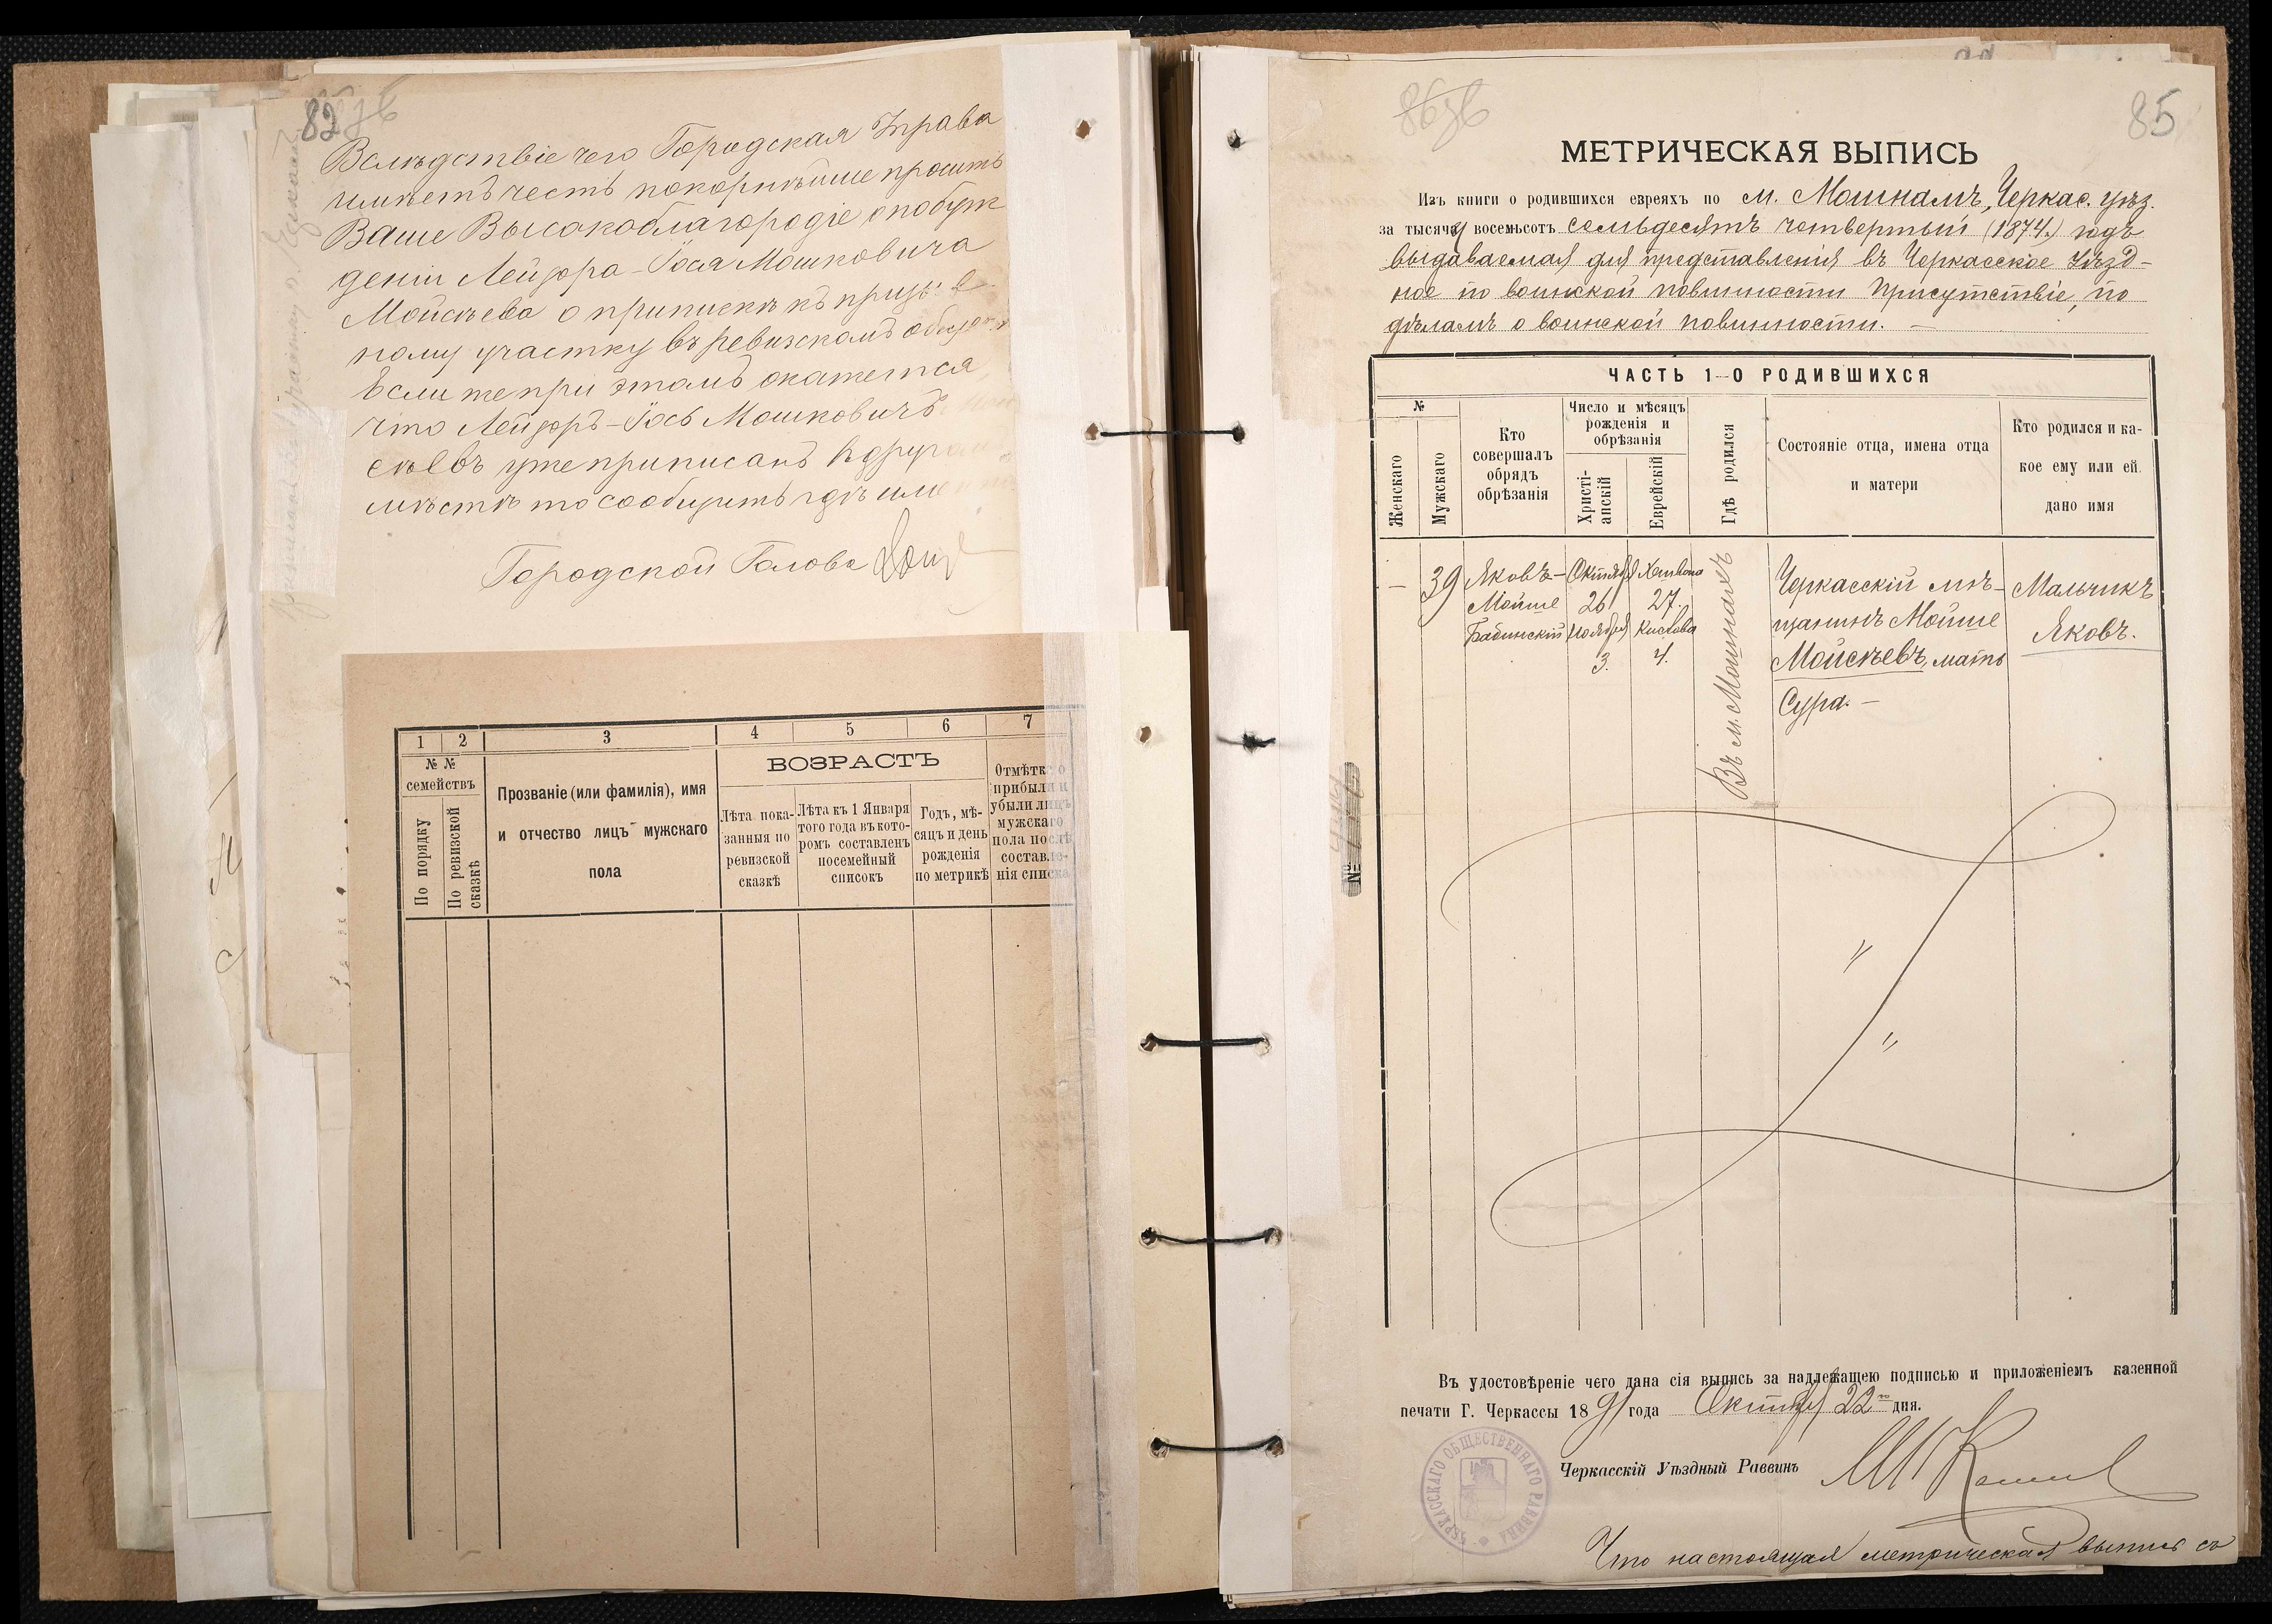 82
Вслѣдствіе чего Городская Управа
имѣетъ честь покорнѣйше просить
Ваше Высокоблагородіе о побуж
деніи Лейзора-Іося Мошковича
Мойсѣева о припискѣ къ призы в
ному участку въ ревизскомъ
Если же при этомъ окажется
что Лейзоръ-Іось Мошковичъ
сѣевъ уже приписанъ в другом
мѣстѣ то сообщить гдѣ име
Городской Голова
1 2 3 4 5 6 7
№ №
семействъ
По порядку
По ревизской
сказкѣ
Прозваніе (или фамилія), имя
и отчество лицъ мужскаго
пола
ВОЗРАСТЪ
Лѣта пока-
занныя по
ревизской
сказкѣ
Лѣта къ 1 Января
того года въ кото-
ромъ составленъ
посемейный
списокъ
Годъ, мѣ-
сяцъ и день
рожденія
по метрикѣ
Отмѣтка о
прибыли и
убыли лицъ
мужскаго
пола послѣ
составле-
нія списка
85
МЕТРИЧЕСКАЯ ВЫПИСЬ
Изъ книги о родившихся евреяхъ по м. Мошнамъ, Черкас. уѣз.
за тысячу восемьсотъ семьдесятъ четвертый (1874.) годъ
выдаваемая для представленія въ Черкасское Уѣзд-
ное по воинской повинности Присутствіе, по
дѣламъ о воинской повинности. —
ЧАСТЬ 1–О РОДИВШИХСЯ
№
Женскаго
Мужскаго
Кто
совершалъ
обрядъ
обрѣзанія
Число и мѣсяцъ
рожденія и
обрѣзанія
Христі-
анскій
Еврейскій
Гдѣ родился
Состояніе отца, имена отца
и матери
Кто родился и ка-
кое ему или ей
дано имя
—
39
Яковъ-
Мойше
Бабинскій
Октября
26
Ноября
3.
Хешвона
27.
Кислова
4.
Въ м. Мошнахъ
Черкасскій мѣ-
щанинъ Мойше
Мойсѣевъ, мать
Сура. —
Мальчикъ
Яковъ.
№
Въ удостовѣреніе чего дана сія выпись за надлежащею подписью и приложеніемъ казенной
печати Г. Черкассы 1891 года Октября 22 дня.
Черкасскій Уѣздный Раввинъ
ЧЕРКАССКАГО ОБЩЕСТВЕННАГО РАВВИНА
Что настоящая метрическая выпись съ